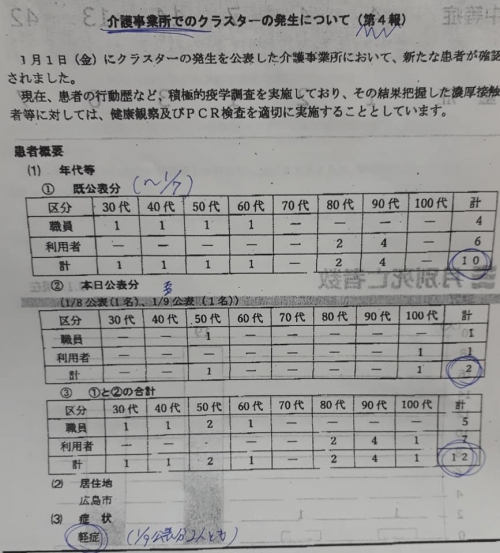 介護事業所でのクラスターの発生について（第４報）
１月１日（金）にクラスターの発生を公表した介護事業所において、新たな患者が確認
されました。
現在、患者の行動歴など、積極的疫学調査を実施しており、その結果把握した濃厚接触
者等に対しては、健康観察及びＰＣＲ検査を適切に実施することとしています。
患者概要
(1) 年代等
① 既公表分 (～1/7)
区分 30代 40代 50代 60代 70代 80代 90代 100代 計
職員 1 1 1 1 — — — — 4
利用者 — — — — — 2 4 — 6
計 1 1 1 1 — 2 4 — 10
② 本日公表分
(1/8公表(1名)、1/9公表(1名))
区分 30代 40代 50代 60代 70代 80代 90代 100代 計
職員 — — 1 — — — — — 1
利用者 — — — — — — — 1 1
計 — — 1 — — — — 1 2
③ ①と②の合計
区分 30代 40代 50代 60代 70代 80代 90代 100代 計
職員 1 1 2 1 — — — — 5
利用者 — — — — — 2 4 1 7
計 1 1 2 1 — 2 4 1 12
(2) 居住地
広島市
(3) 症状
軽症 (1/9公表分2人とも)